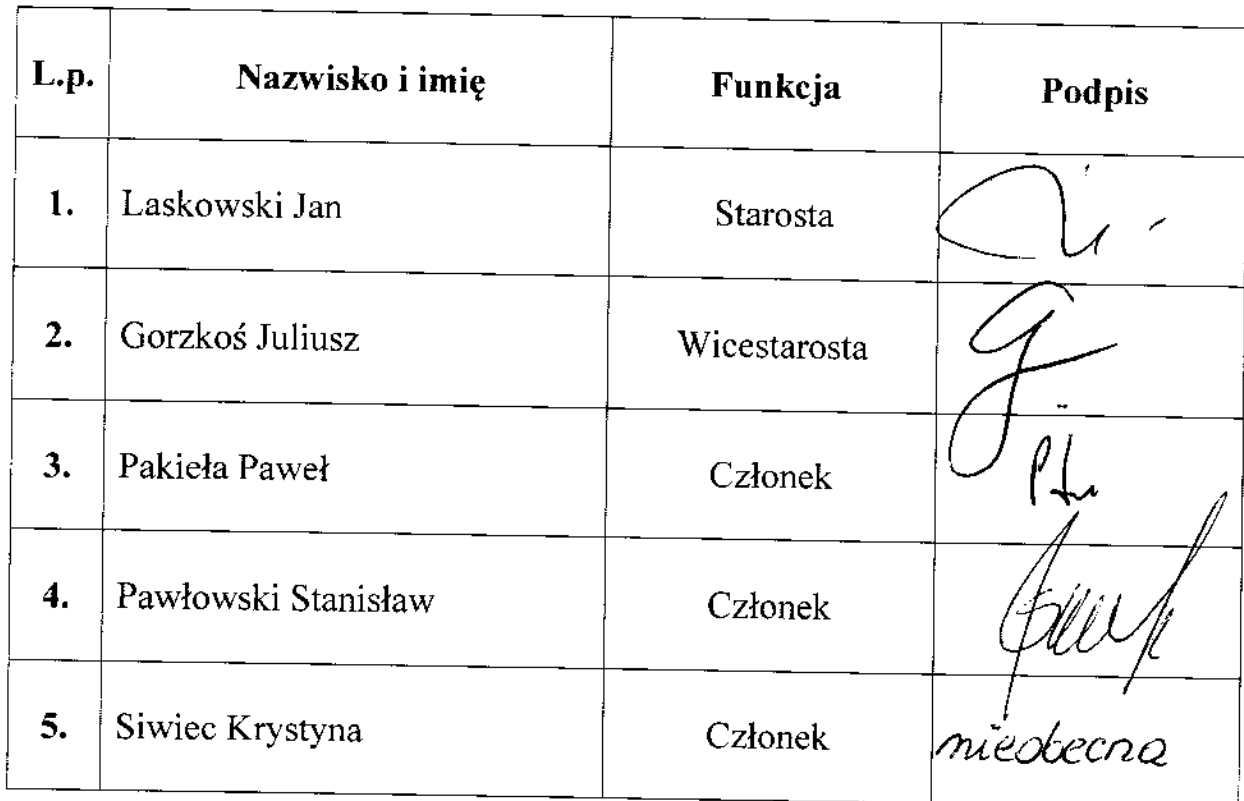 L.p. Nazwisko i imię Funkcja Podpis
1. Laskowski Jan Starosta
2. Gorzkoś Juliusz Wicestarosta
3. Pakieła Paweł Członek
4. Pawłowski Stanisław Członek
5. Siwiec Krystyna Członek nieobecna